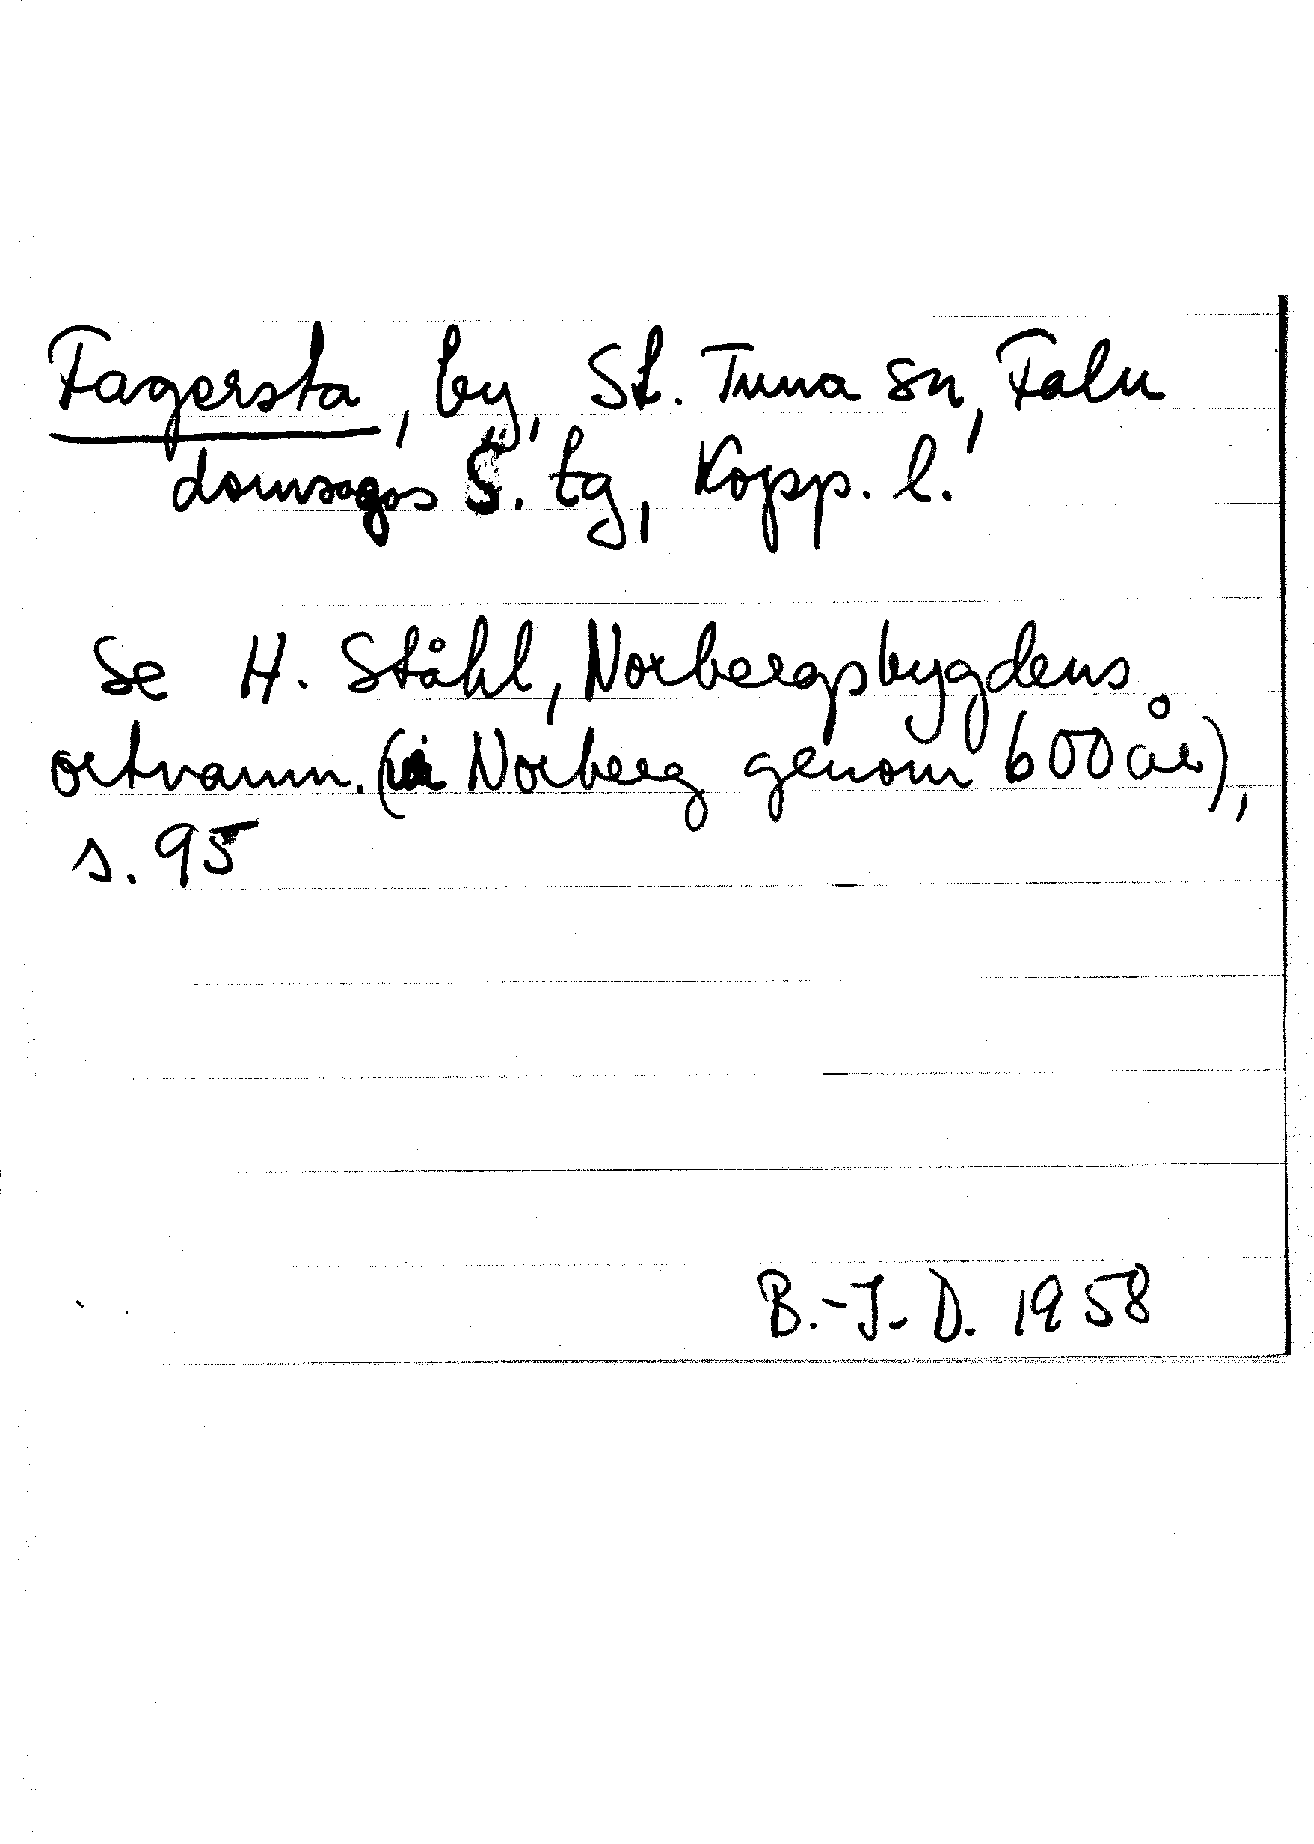 Fagersta, by, St. Tuna sn, Falu
domsagas S. tg, Kopp. l.
Se H. Ståhl, Norbergsbygdens
ortnamn. (i Norberg genom 600 år),
s. 95
B.-J. D. 1958